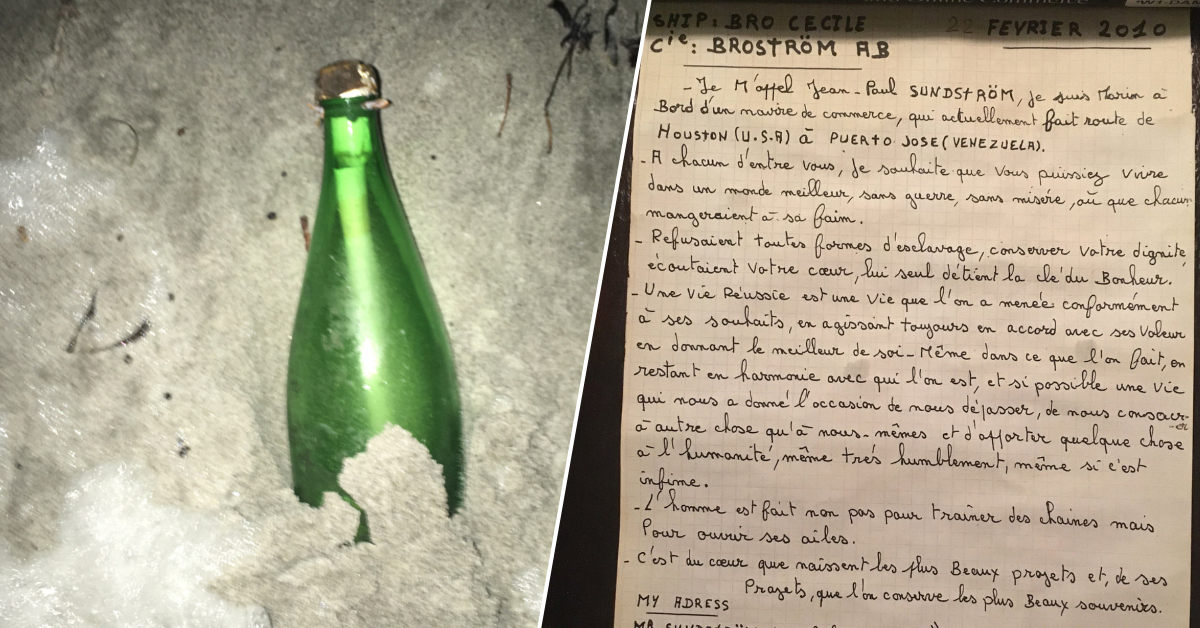 SHIP: BRO CECILE 22 FEVRIER 2010
Cie: BROSTRÖM AB
- Je M'appel Jean-Paul SUNDSTRÖM, je suis Marin à
Bord d'un navire de commerce, qui actuellement fait route de
HOUSTON (U.S.A) à PUERTO JOSE (VENEZUELA).
- A chacun d'entre vous, je souhaite que vous puissiez vivre
dans un monde meilleur, sans guerre, sans misère, où que chacun
mangeraient à sa faim.
- Refusaient toutes formes d'esclavage, conserver votre dignité,
écoutaient votre cœur, lui seul détient la clé du Bonheur.
- Une Vie Réussie est une Vie que l'on a menée conformément
à ses souhaits, en agissant toujours en accord avec ses Valeur
en donnant le meilleur de soi-Même dans ce que l'on fait, en
restant en harmonie avec qui l'on est, et si possible une Vie
qui nous a donné l'occasion de nous dépasser, de nous consacr-
à autre chose qu'à nous-mêmes et d'apporter quelque chose -er
à l'humanité, même très humblement, même si c'est
infime.
- L'homme est fait non pas pour traîner des chaines mais
Pour ouvrir ses ailes.
- C'est du cœur que naissent les plus Beaux projets et, de ses
Projets, que l'on conserve les plus Beaux souvenirs.
MY ADRESS